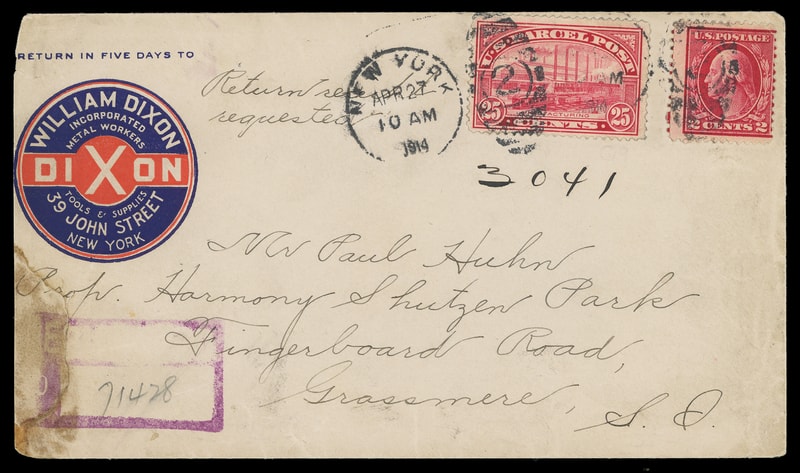 RETURN IN FIVE DAYS TO
WILLIAM DIXON
INCORPORATED
METAL WORKERS
DIXON
TOOLS & SUPPLIES
39 JOHN STREET
NEW YORK
Return
requested
NEW YORK
APR 27
10 AM
1914
U.S. PARCEL POST
25
MANUFACTURING
25
CENTS
U.S. POSTAGE
2 CENTS 2
3041
Mr Paul Huhn
Prop. Harmony Shutzen Park
Fingerboard Road,
Grassmere, S. I.
71428